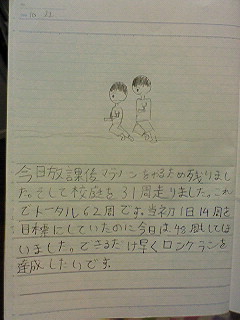 今日放課後マラソンをやるため残りまし
た。そして校庭を31周走りました。これ
でトータル62周です。当初1日14周を
目標にしていたのに今日は48周してしま
いました。できるだけ早くロングランを
達成したいです。